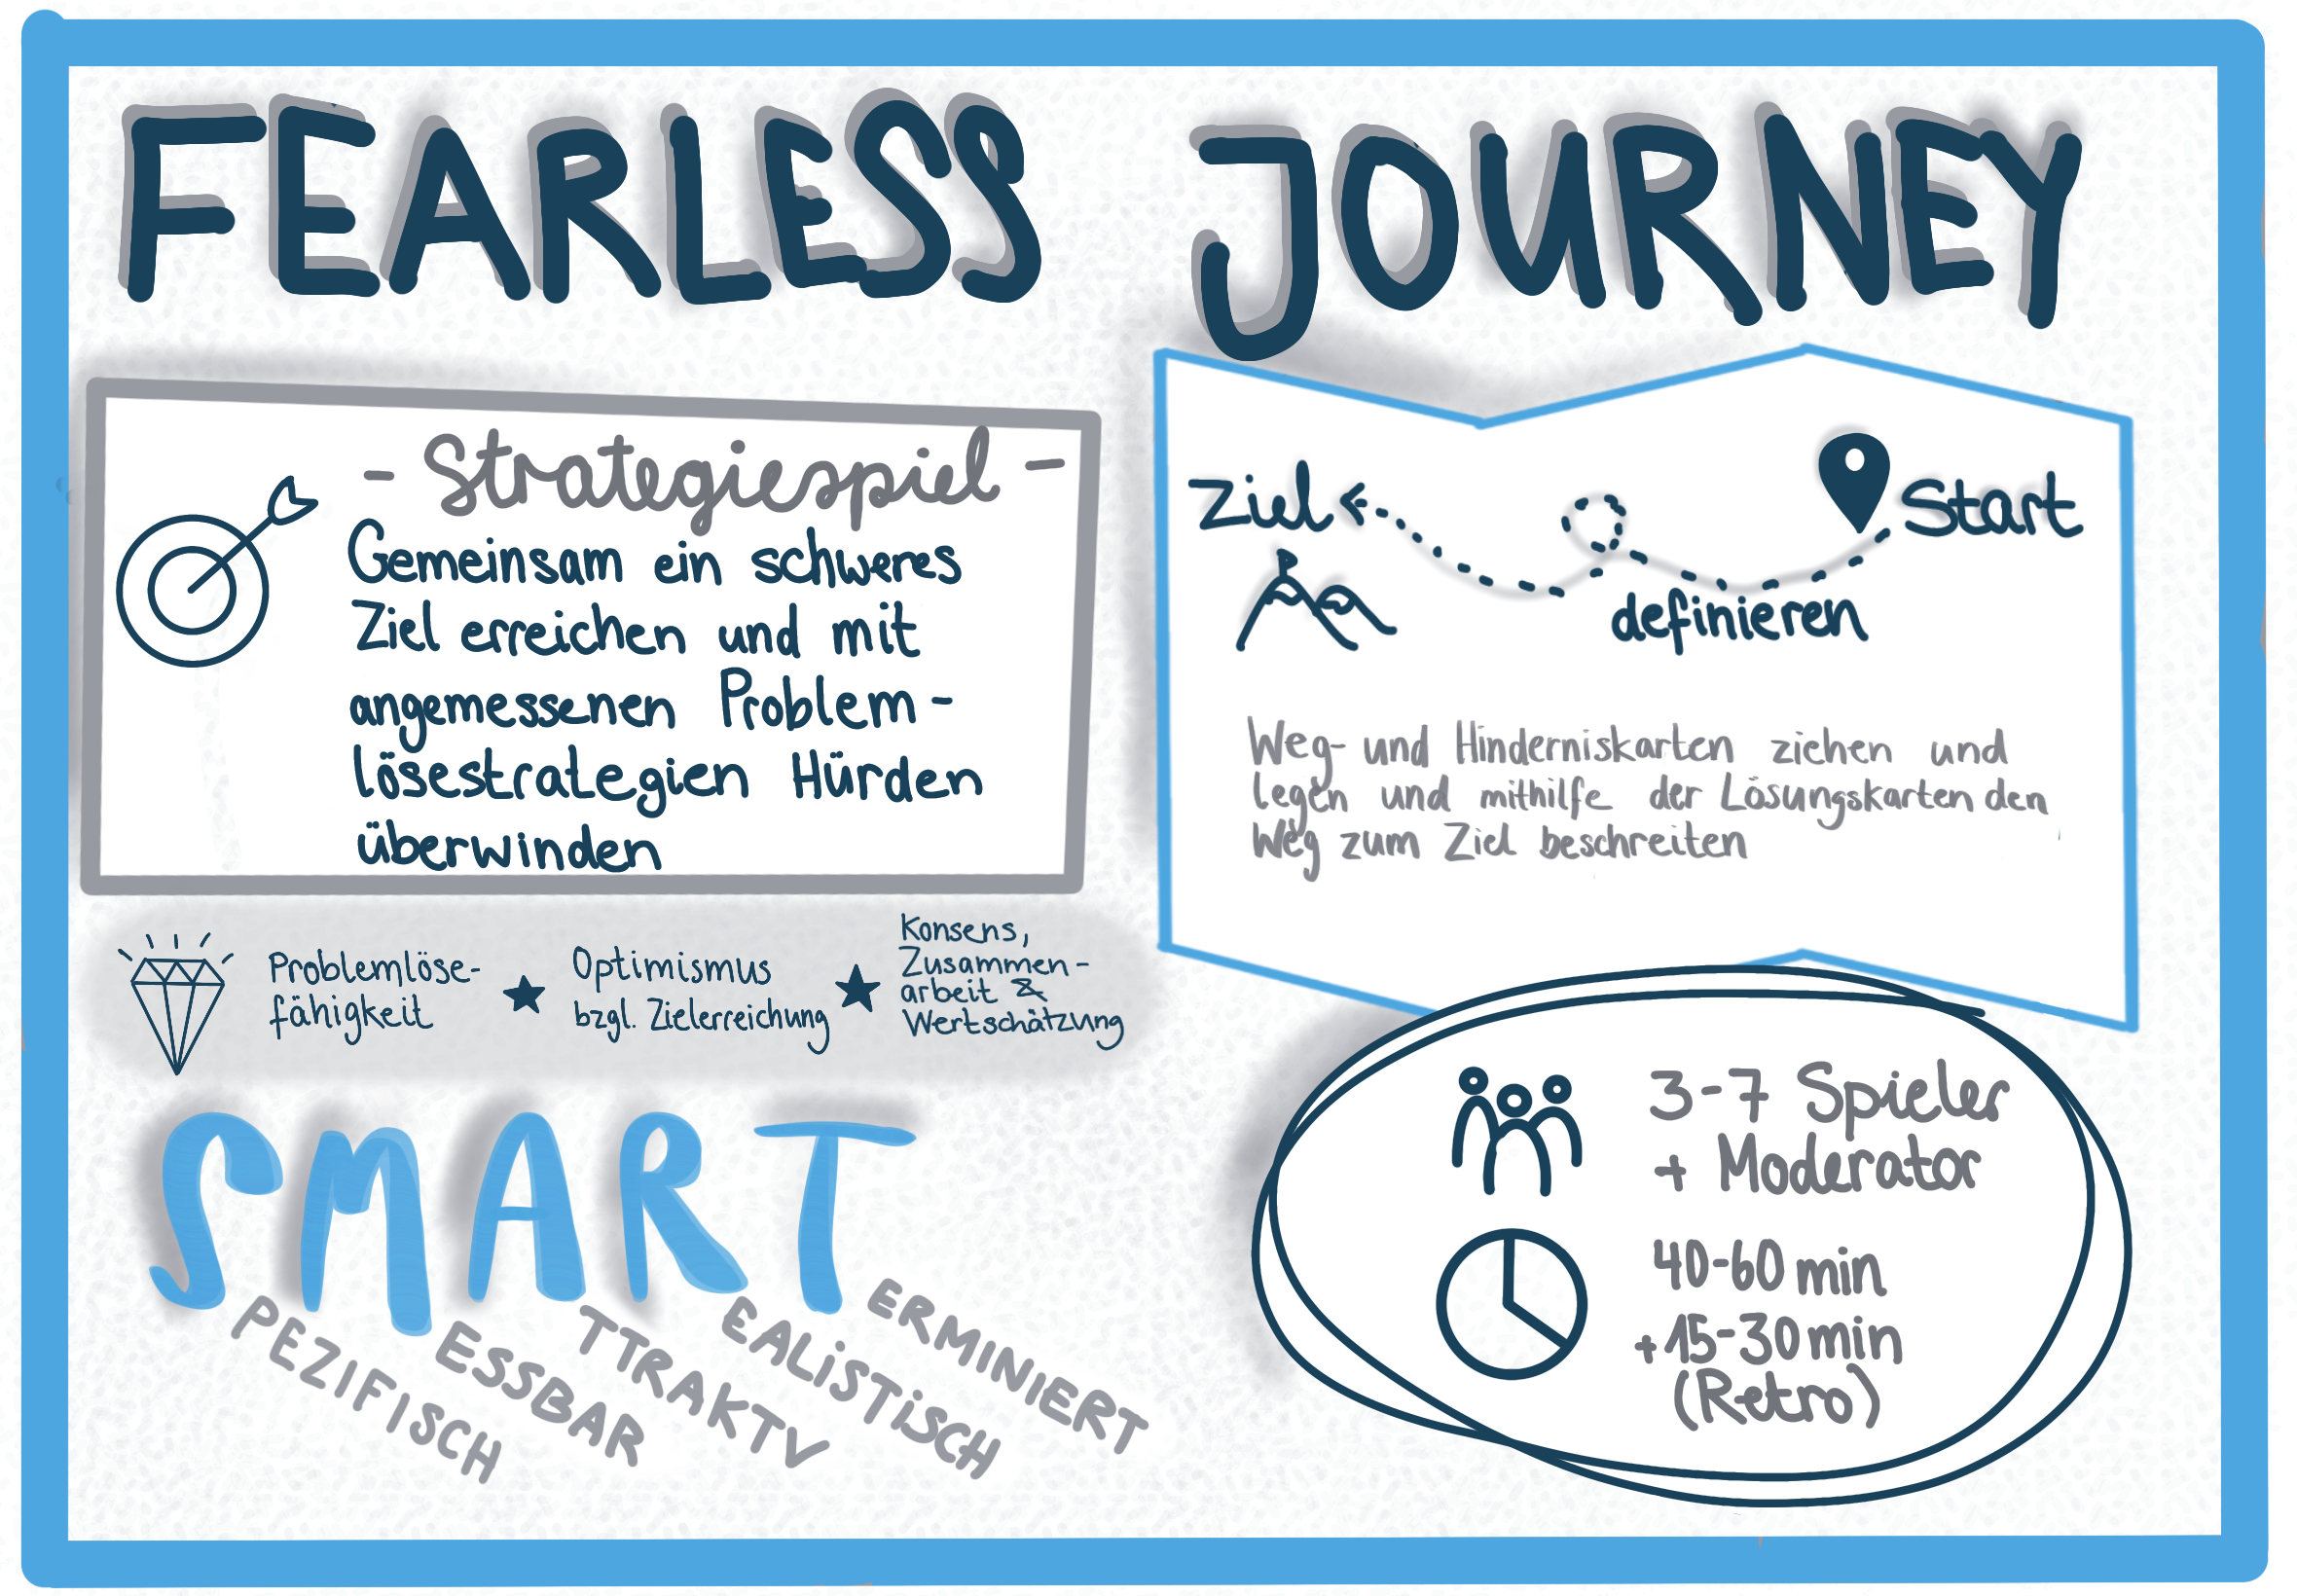 FEARLESS JOURNEY
- Strategiespiel -
Gemeinsam ein schweres
Ziel erreichen und mit
angemessenen Problem-
lösestrategien Hürden
überwinden
Ziel
Start
definieren
Weg- und Hinderniskarten ziehen und
legen und mithilfe der Lösungskarten den
Weg zum Ziel beschreiten
Problemlöse-
fähigkeit
Optimismus
bzgl. Zielerreichung
Konsens,
Zusammen-
arbeit &
Wertschätzung
SMART
PEZIFISCH
ESSBAR
TTRAKTV
EALiSTiSCH
ERMINIERT
3-7 Spieler
+ Moderator
40-60 min
+15-30 min
(Retro)